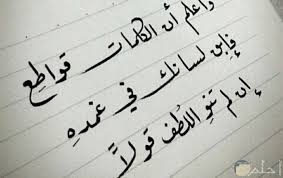 واعلم أن الكلمات قواطع
فابق لسانك في غمدهِ
إن لم تنوِ اللُطف قولاً